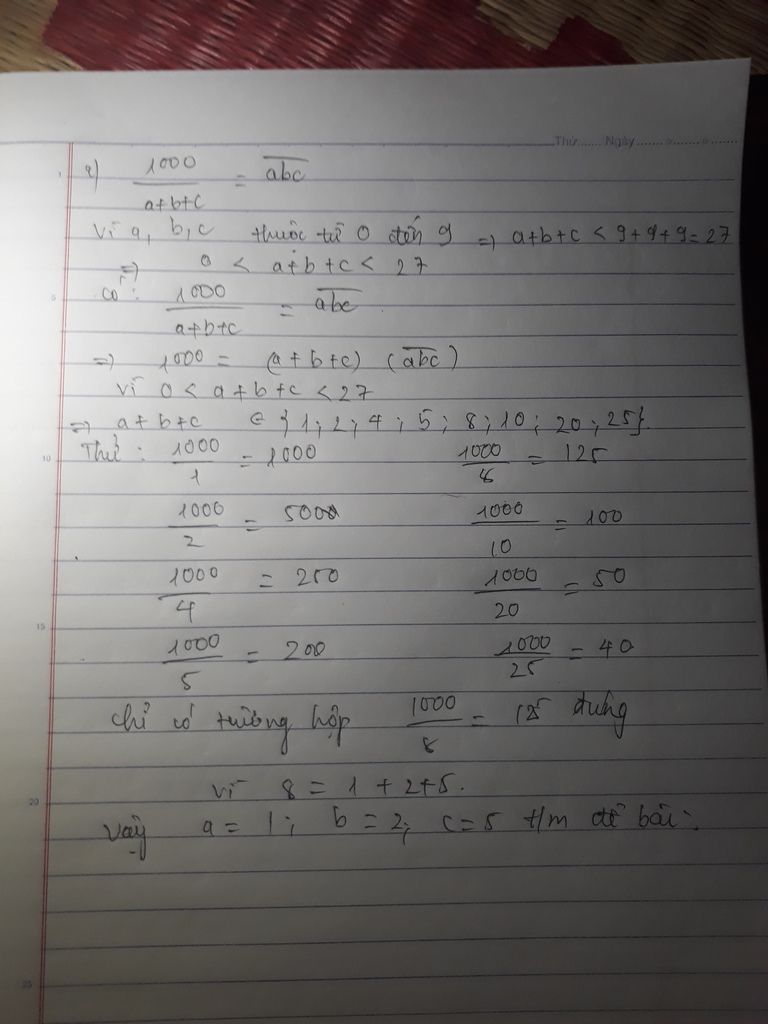 Thứ...... Ngày...........
a) 1000/(a+b+c) = \overline{abc}
Vì a, b, c thuộc từ 0 đến 9 => a+b+c < 9+9+9=27
=> 0 < a+b+c < 27
có: 1000/(a+b+c) = \overline{abc}
=> 1000 = (a+b+c) (\overline{abc})
vì 0 < a+b+c < 27
=> a+b+c ∈ {1; 2; 4; 5; 8; 10; 20; 25}.
Thử: 1000/1 = 1000 1000/8 = 125
1000/2 = 5000 1000/10 = 100
1000/4 = 250 1000/20 = 50
1000/5 = 200 1000/25 = 40
chỉ có trường hợp 1000/8 = 125 đúng
vì 8 = 1+2+5.
Vậy a = 1; b = 2; c = 5 t/m đề bài.
5
10
15
20
25